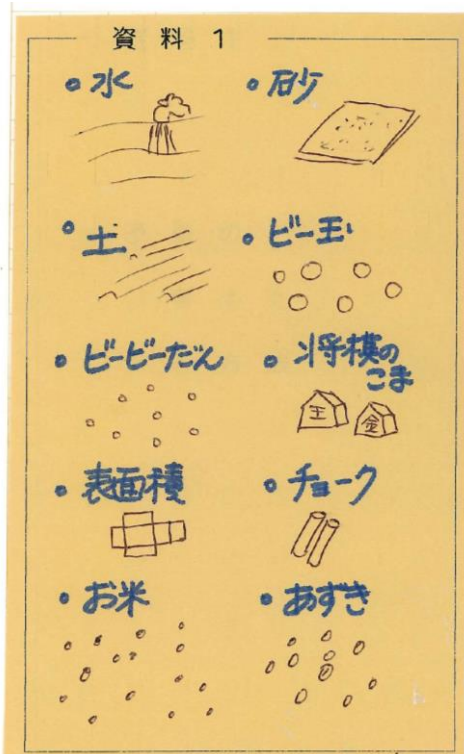 資料1
• 水
• 砂
• 土
• ビー玉
• ビービーだん
• 将棋の
こま
王
金
• 表面積
• チョーク
• お米
• あずき